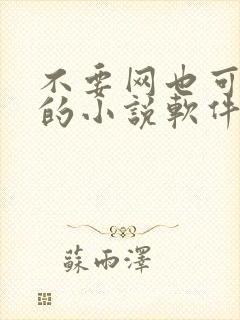 不要网也可
的小說軟件
蘇雨澤